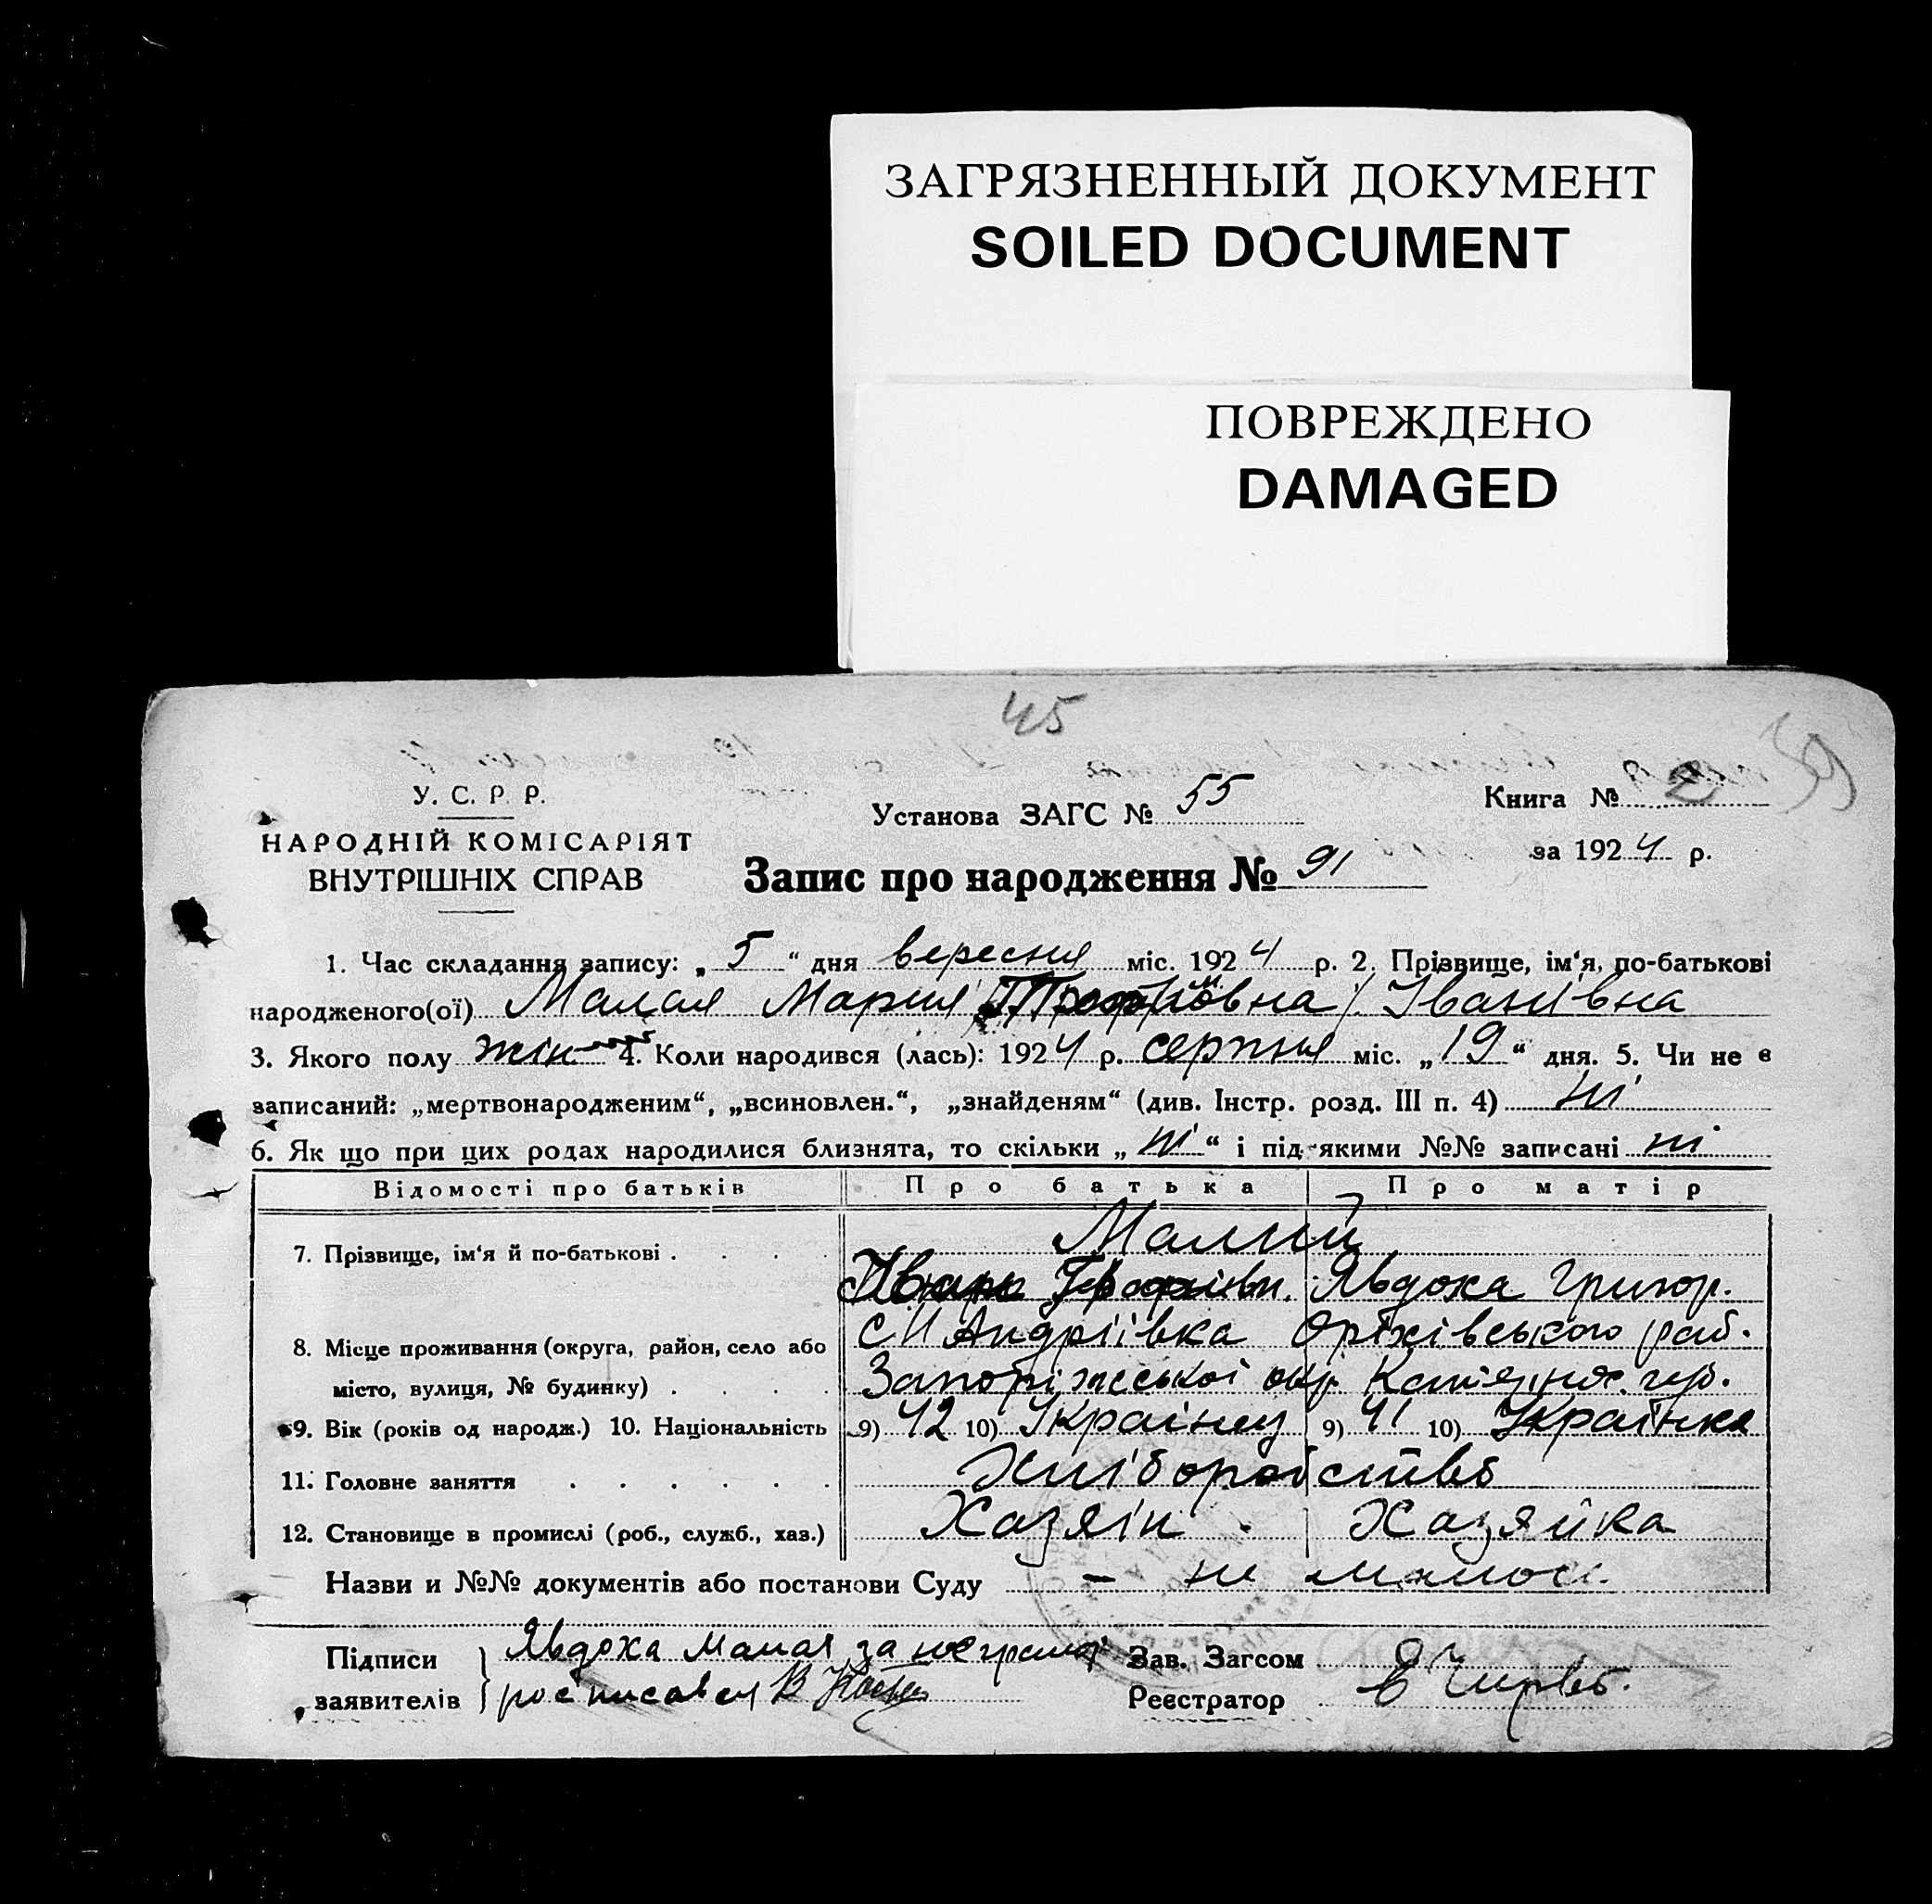 ЗАГРЯЗНЕННЫЙ ДОКУМЕНТ
SOILED DOCUMENT
ПОВРЕЖДЕНО
DAMAGED
45
У. С. Р. Р.
НАРОДНІЙ КОМІСАРІЯТ
ВНУТРІШНІХ СПРАВ
Установа ЗАГС № 55
Книга № 2
за 1924 р.
Запис про народження № 91
1. Час складання запису: „5“ дня вересня міс. 1924 р. 2. Прізвище, ім‘я, по-батькові
народженого(ої) Малая Мария Іванівна
3. Якого полу жін 4. Коли народився (лась): 1924 р. серпня міс. „19“ дня. 5. Чи не є
записаний: „мертвонародженим“, „всиновлен.“, „знайденям“ (див. Інстр. розд. III п. 4) ні
6. Як що при цих родах народилися близнята, то скільки „ні“ і під якими №№ записані ні
Відомості про батьків Про батька Про матір
7. Прізвище, ім‘я й по-батькові . . . . Малий
Явдоха Григор.
8. Місце проживання (округа, район, село або с Андріївка Оріхівського рай.
місто, вулиця, № будинку) . . . . Запоріжської окр.
9. Вік (років од народж.) 10. Національність 9) 42 10) Українец 9) 41 10) Українка
11. Головне заняття . . . . . . Хліборобство
12. Становище в промислі (роб., служб., хаз.) Хазяїн . Хазяйка
Назви и №№ документів або постанови Суду – не
Підписи заявителів
Явдоха Малая за неграмот
росписався В
Зав. Загсом
Реєстратор